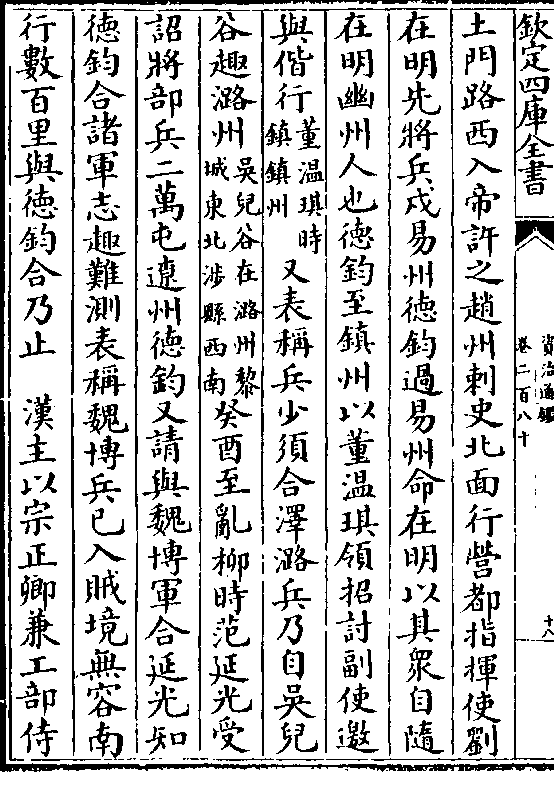 欽定四庫全書
資治通鑑
卷二百八十
十八
土門路西入帝許之趙州刺史北面行營都指揮使劉
在明先將兵戍易州德鈞過易州命在明以其衆自隨
在明幽州人也德鈞至鎮州以董温琪領招討副使邀
與偕行董温琪時鎮鎮州又表稱兵少須合澤潞兵乃自吳兒
谷趣潞州吳兒谷在潞州黎城東北涉縣西南癸酉至亂柳時范延光受
詔將部兵二萬屯遼州德鈞又請與魏博軍合延光知
德鈞合諸軍志趣難測表稱魏博兵已入賊境無容南
行數百里與德鈞合乃止 漢主以宗正卿兼工部侍